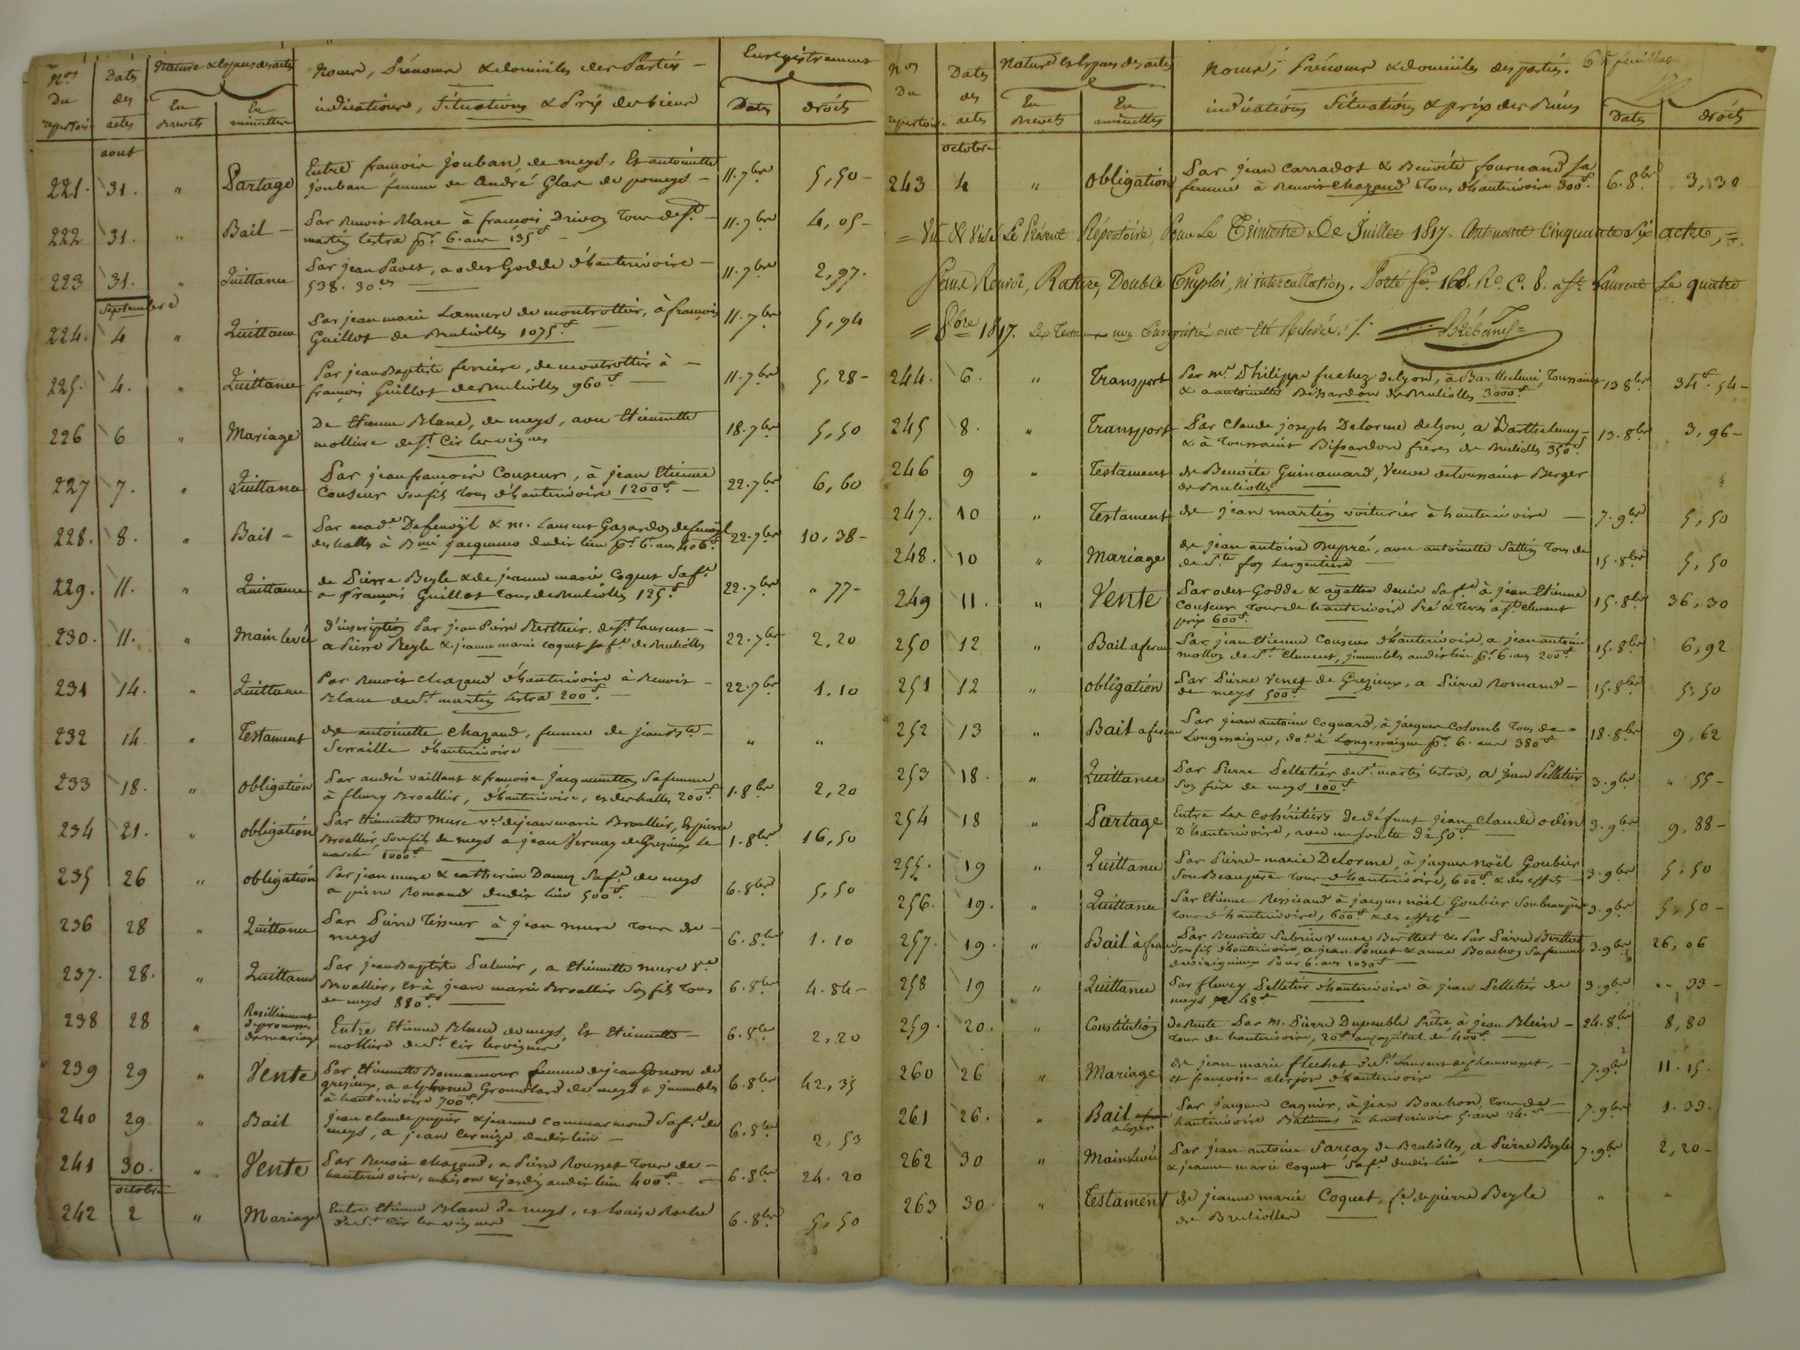 Nos Du repertoire
Dates des actes
Nature & Especes des actes
En Brevets
En minuttes
Noms, Prénoms & domiciles des Parties
indications, Situations & Prix des biens
Enregistrement
Dates
Droits
aout
221. 31. " Partage Entre françois jouban de meys, Et antoinette 11. 7bre 5, 50
jouban femme de André Glas de pomeys
222 31. " Bail Par Benoit Blanc à françois Drivon Tous de St 11. 7bre 4, 05
martin lestra pr 6. ans 135f
223 31. " Quittance Par jean Pavet, a odet Godde d'hauterivoire 11. 7bre 2, 97.
538. 30cs
septembre
224. 4 " Quittance Par jean marie Lamure de montrottier, à françois 11. 7bre 5, 94
Guillot de Brulioles 1075f
225. 4. " Quittance Par jean Baptiste ferriere, de montrottier à 11. 7bre 5, 28
françois Guillot de Brulioles 960f
226 6 " Mariage De Etienne Blanc, de meys, avec Etiennette 18. 7bre 5, 50
molliere de St Cir les vignes
227 7. " Quittance Par jean françois Couseur, à jean Etienne 22. 7bre 6, 60
Couseur Son fils Tous d'hauterivoire 1200f
228. 8. " Bail Par made Defenoÿl & m. Laurent Gazardon de 22. 7bre 10, 38
des halles à jacquemo dudit lieu pr 6. ans 406f
229. 11. " Quittance de Pierre Beyle & de jeanne marie Coquet Sa fe 22. 7bre " 77
a françois Guillot Tous de Brulioles 125f
230. 11. " Main levée d'inscription Par jean Pierre Berthier, de St Laurent 22. 7bre 2, 20
a Pierre Beyle & jeanne marie Coquet Sa fe de Brulioles
231 14. " Quittance Par Benoit Chazaud d'hauterivoire à Benoit 22. 7bre 1. 10
Blanc de St martin lestra 200f
232 14. " Testament de antoinette Chazaud, femme de jean Bte " "
Serraille d'hauterivoire
233 18. " obligation Par andré vaillant & françoise jacquemetton Sa femme 1. 8bre 2, 20
à fleury Broallier, d'hauterivoire, et des halles 200f
234 21. " obligation Par Etiennette mure ve de jean marie Broallier, Et pierre 1. 8bre 16, 50
Broallier, Son fils de meys a jean Vernay de Grezieux Le
marché 1000f
235 26 " obligation Par jean mure & catherine Sa fe de meys 6. 8bre 5, 50
a pierre Romand dudit lieu 500f
236 28 " Quittance Par Pierre Tisseur à jean mure Tous de 6. 8bre 1. 10
meys
237. 28. " Quittance Par jean Baptiste , a Etiennette mure Ve 6. 8bre 4. 84
Broallier, et à jean marie Broallier Son fils Tous
de meys 880f
238 28 " Resilliement de promesse de mariage Entre Etienne Blanc de meys, Et Etiennette 6. 8bre 2, 20
molliere de St Cir les vignes
239 29 " Vente Par Etiennette Bonnamour femme de jean Gonon de 6. 8bre 42, 35
grezieux, a alphonse Gromollard de meys & jmmeubles
à hauterivoire 700f
240 29. " Bail jean claude pupier & jeanne commarmond Sa fe de 6. 8bre 2, 53
meys, a jean dudit lieu
241 30. " Vente Par Benoit Chazaud, a Pierre Rousset Tous de 6. 8bre 24. 20
hauterivoire, maison & jardin audit lieu 400f
octobre
242 2 " Mariage Entre Etienne Blanc de meys, et Louise Roche 6. 8bre 5, 50
de St Cir les vignes
Nos Du repertoire
Dates des actes
Nature & Especes des actes
En Brevets
En minuttes
Noms, Prénoms & domiciles des parties.
indications Situations & prix des Biens
6e feuillet
Dates
droits
octobre
243 4 " obligation Par jean Carradot & Benoite fournand Sa 6. 8bre 3, 30
femme à Benoit Chazaud Tous d'hauterivoire 300f
= Vu & Visé Le Présent Répertoire Pour Le Trimestre De Juillet 1817. Contenant Cinquante Six actes, =
Sans Renvoi, Rature, Double Emploi, ni intercallation. Porté fo 168. Ro C. 8. a St Laurent Le quatre
= 8bre 1817. Les Testamens non Enregistrés ont Eté Relevés.
244. 6. " Transport Par mr Philippe fuchez de lyon, à Barthelemi, Toussaint 13 8bre 34f. 54
& a antoinette Bissardon de Brulioles 3000f
245 8. " Transport Par Claude joseph Delorme de lyon, a Barthelemy 13. 8bre 3, 96
& à Toussaint Bissardon frères de Brulioles 350f
246 9 " Testament de Benoite Guinamard, Veuve de toussaint Berger
de Brulioles
247. 10 " Testament de jean martin voiturier à hauterivoire 7. 9bre 5, 50
248. 10 " Mariage de jean antoine Dupré, avec antoinette Tous de 15. 8bre 5, 50
de Ste foy Largentiere
249 11. " Vente Par odet Godde & agathe denis Sa fe à jean Etienne 15. 8bre 36, 30
Couseur Tous de hauterivoire Pré & Terre a St clement
prix 600f
250 12 " Bail a ferme Par jean Etienne Couseur d'hauterivoire, a jean antoine 15. 8bre 6, 92
mollin de St Clement, jmmeubles audit lieu pr 6. ans 200f
251 12 " obligation Par Pierre Venet de Grezieux, a Pierre Romand 15. 8bre 5, 50
de meys 500f
252 13 " Bail a ferme Par jean antoine Coquard, à jacques Colomb Tous de 18. 8bre 9, 62
Longessaigne, do à Longessaigne pr 6. ans 380f
253 18. " Quittance Par Pierre Pelletier de St martin lestra, a jean Pelletier 3. 9bre " 55
Son frère de meys 100f
254 18 " Partage Entre Les Cohéritiers de défunt jean Claude odin 3. 9bre 9, 88
D'hauterivoire, avec un soulte de 50f
255. 19 " Quittance Par Pierre-marie Delorme, à jaques noël Goubier 3. 9bre 5. 50
Son Beaupère Tous d'hauterivoire, 600f & des effets
256. 19. " Quittance Par Etienne à jacques noël Goubier Son beaupère 3. 9bre 5, 50
Tous d'hauterivoire, 600f & des effets
257. 19. " Bail à ferme Par Benoite veuve Berthet & Par Pierre Berthet 3. 9bre 26, 06
Son fils d'hauterivoire, a jean Poncet & anne Bouchon Sa femme
Pour 6. ans 1030f
258 19 " Quittance Par fleury Pelletier d'hauterivoire à jean Pelletier de 3. 9bre " 33
meys 48f
259. 20. " Constitution de Rente Par m. Pierre Dupeuble Prêtre, à jean Blein 24. 8bre 8, 80
Tous de hauterivoire, 20f au capital de 400f
260 26 " Mariage de jean marie flechet de St Laurent de chamousset, 7. 9bre 11. 15.
et françoise d'hauterivoire
261 26. " Bail a loyer Par jacques Cagnier, à jean Bouchon, Tous de 7. 9bre 1. 33.
hauterivoire Batimens à hauterivoire 5. ans 24f
262 30 " Mainlevée Par jean antoine Sarcey de Brulioles, a Pierre Beyle 7. 9bre 2, 20
& jeanne marie Coquet Sa fe dudit lieu
263 30. " Testament de jeanne marie Coquet, fe de pierre Beyle " "
de Brulioles